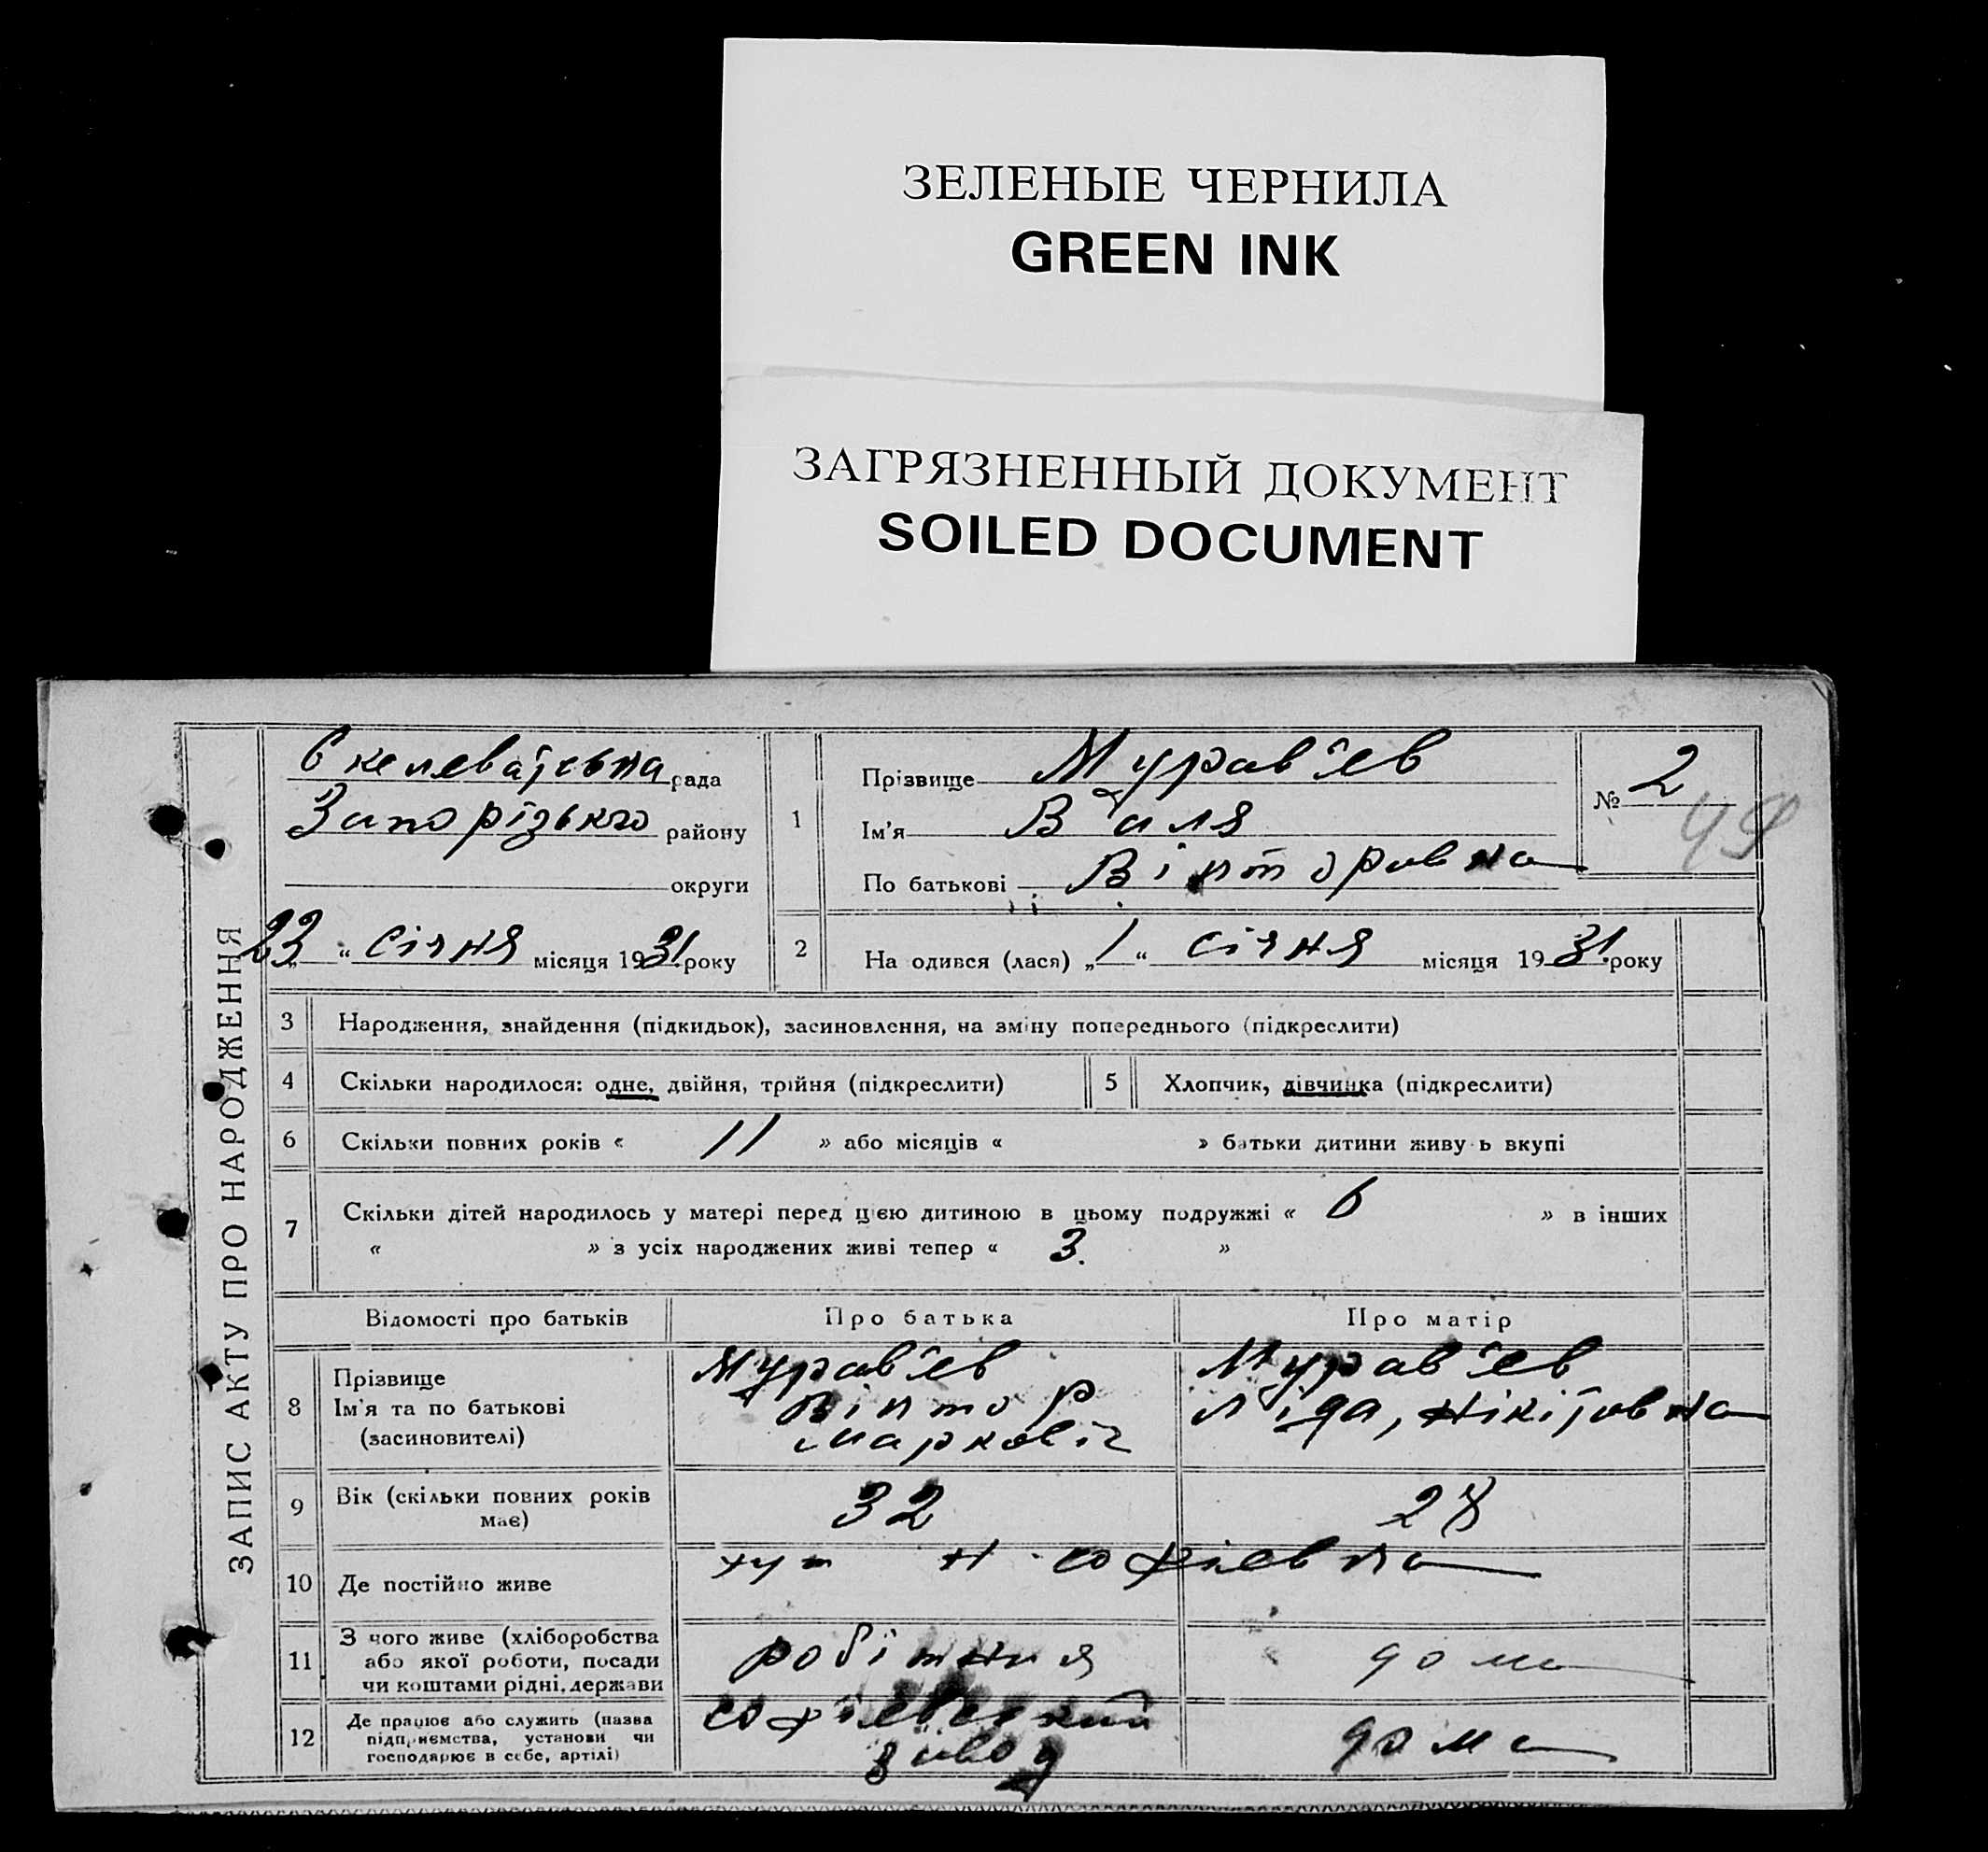 ЗЕЛЕНЫЕ ЧЕРНИЛА
GREEN INK
ЗАГРЯЗНЕННЫЙ ДОКУМЕНТ
SOILED DOCUMENT
ЗАПИС АКТУ ПРО НАРОДЖЕННЯ
Скелеваїська рада
Запорізького району
округи
23 “ січня місяця 1931 року
1
Прізвище Мурав'ев
Ім'я Валя
По батькові Вікторовна
№ 2
49
2 На одився (лася) „1“ січня місяця 1931 року
3 Народження, знайдення (підкидьок), засиновлення, на зміну попереднього (підкреслити)
4 Скільки народилося: одне, двійня, трійня (підкреслити)
5 Хлопчик, дівчинка (підкреслити)
6 Скільки повних років « 11 » або місяців « » батьки дитини живу ь вкупі
7 Скільки дітей народилось у матері перед цією дитиною в цьому подружжі « 6 » в інших
« » з усіх народжених живі тепер « 3. »
Відомості про батьків Про батька Про матір
8 Прізвище
Ім'я та по батькові
(засиновителі)
Мурав'ев
Віктор
Маркович
Мурав'ев
Ліда, Нікітовна
9 Вік (скільки повних років
має)
32
28
10 Де постійно живе
хут Н. Софієвка
11 З чого живе (хліборобства
або якої роботи, посади
чи коштами рідні, держави
робітник
дома
12 Де працює або служить (назва
підприємства, установи чи
господарює в себе, артілі)
Софієвский
завод
дома